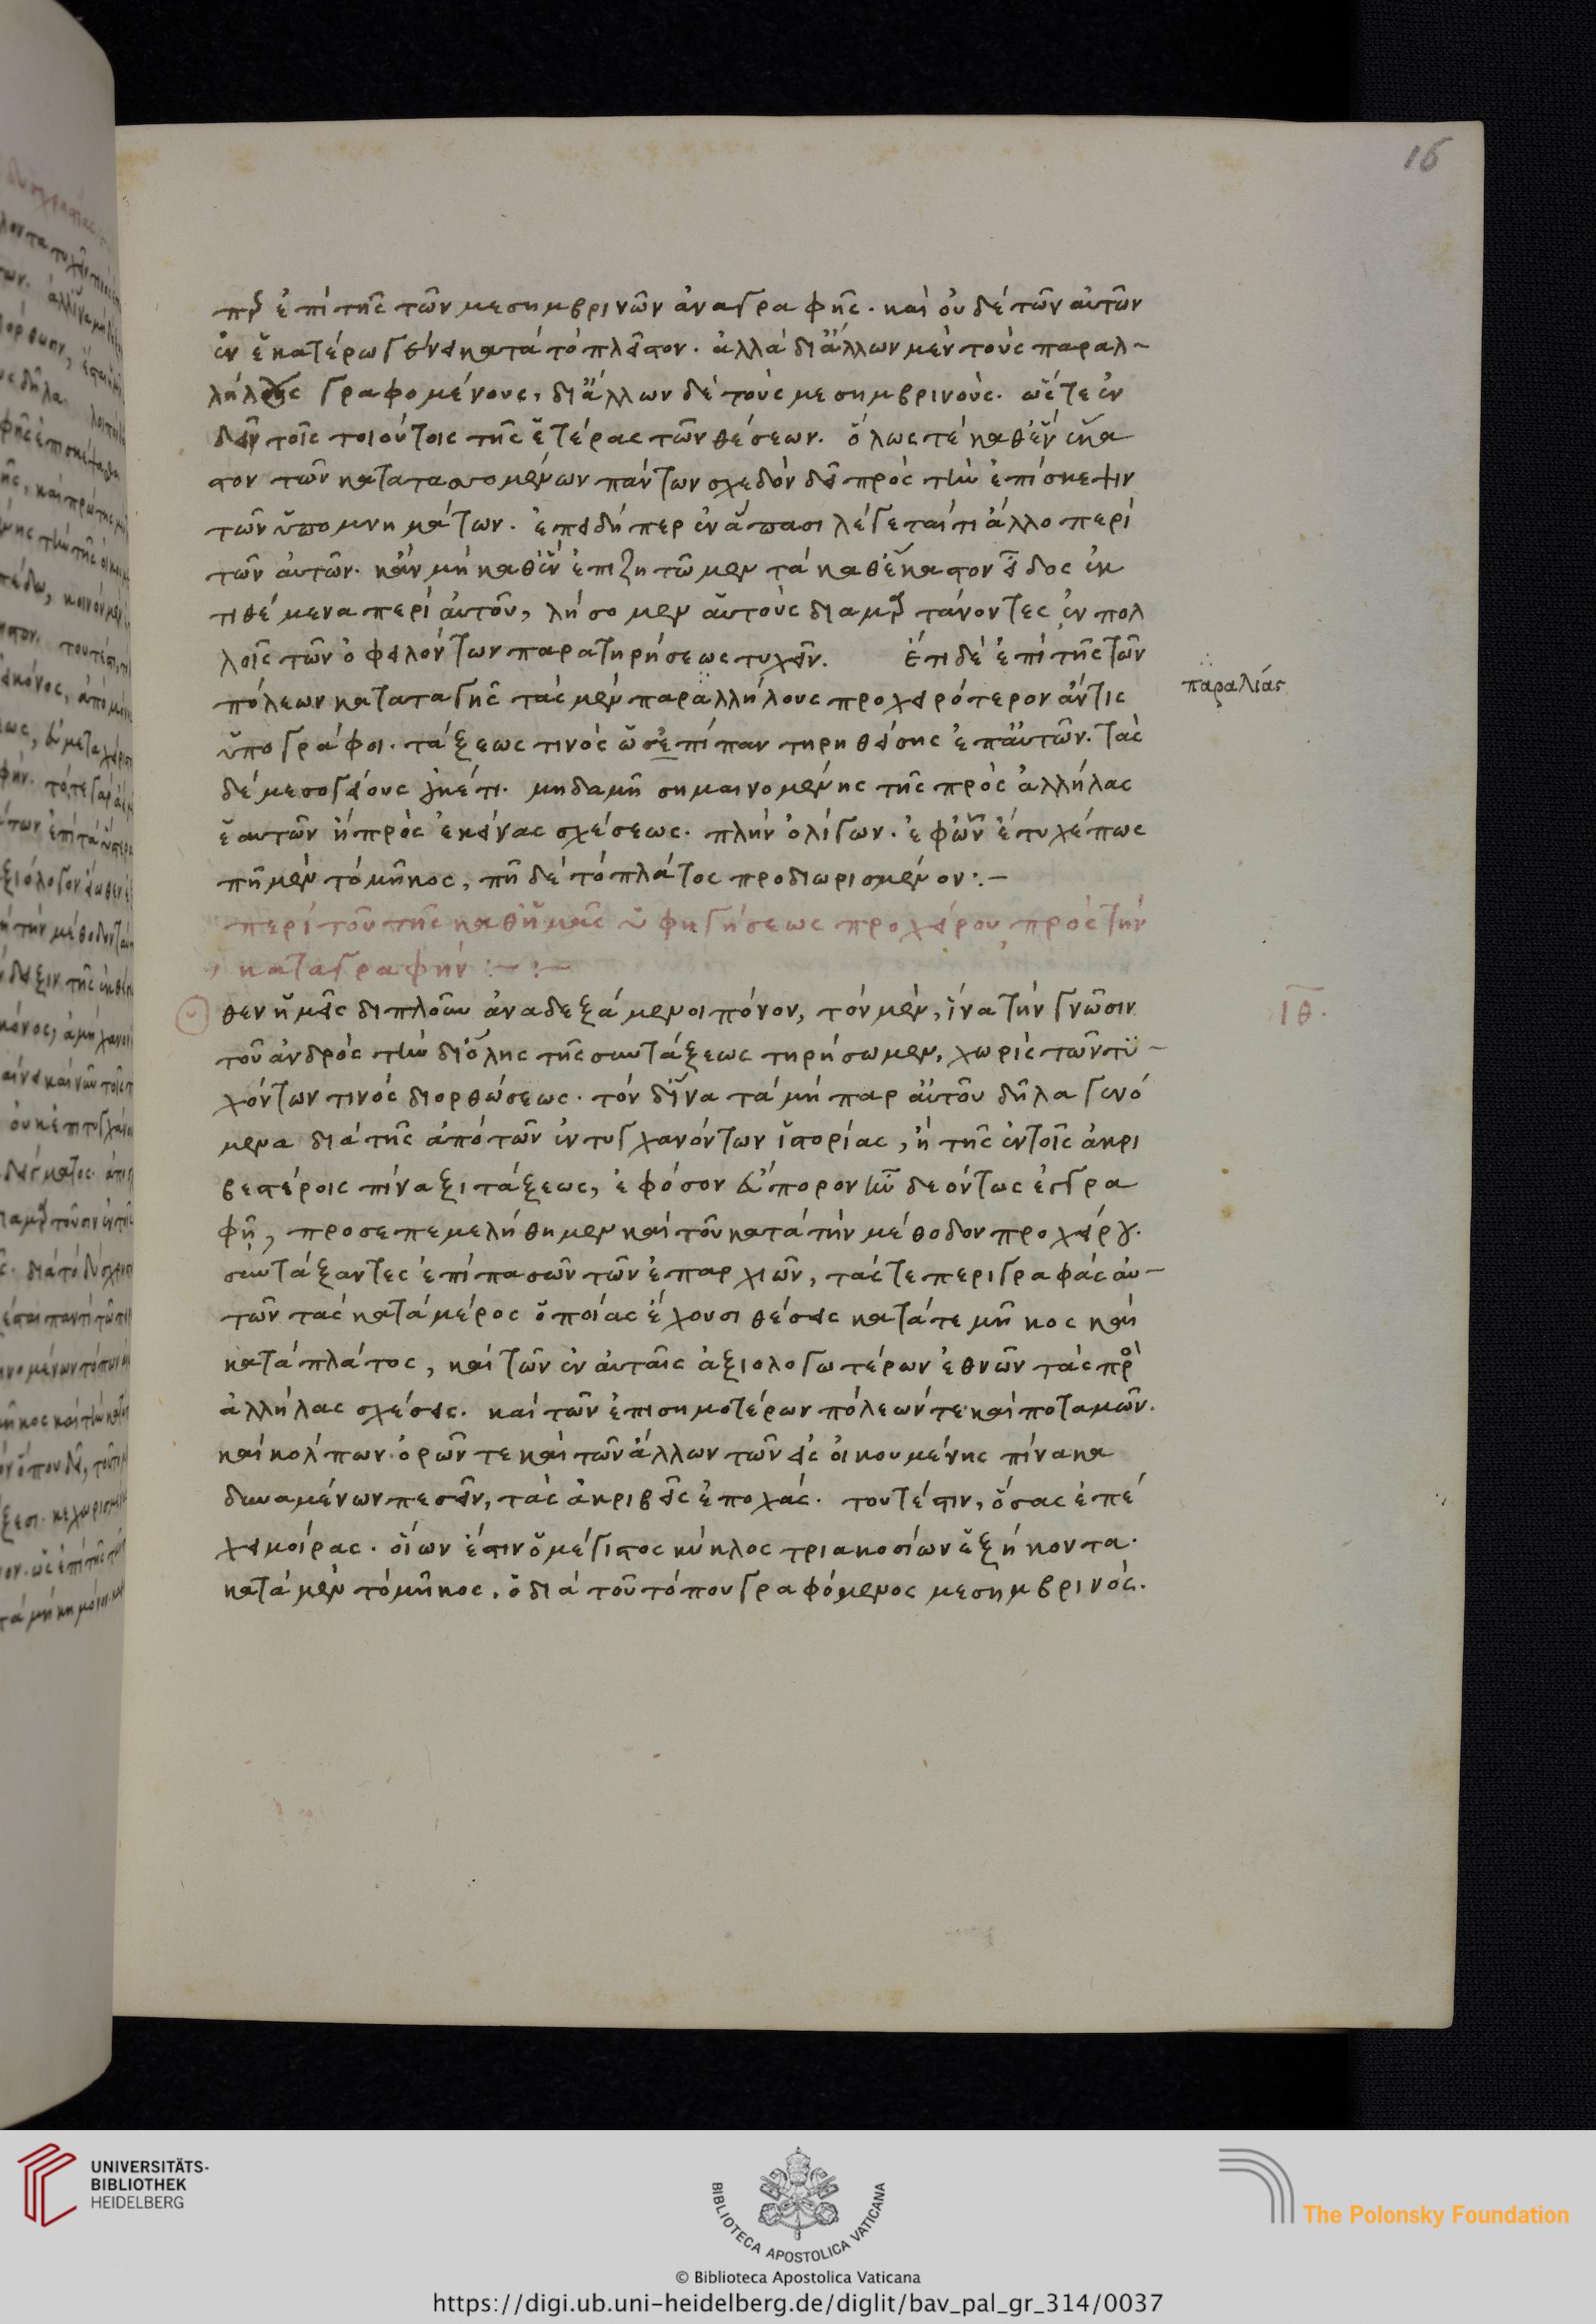 16
πρ ἐπὶ τῆς τῶν μεσημβρινῶν ἀναγραφῆς. καὶ οὐδὲ τῶν αὐτῶν
ἐν ἑκατέρω γένει κατὰ τὸ πλεῖστον. ἀλλὰ δι' ἄλλων μὲν τοὺς παραλ-
λήλους γραφομένους, δι' ἄλλων δὲ τοὺς μεσημβρινούς. ὥστε ἐν
δεῖν τοῖς τοιούτοις τῆς ἑτέρας τῶν θέσεων. ὅλως τὲ καθ' ἓν ἕκα
στον τῶν κατατασσομένων πάντων σχεδὸν δεῖ πρὸς τὴν ἐπίσκεψιν
τῶν ὑπομνημάτων. ἐπειδήπερ ἐν ἅπασι λέγεταί τι ἄλλο περὶ
τῶν αὐτῶν. κἂν μὴ καθ' ἓν ἐπιζητῶμεν τὰ καθ' ἕκαστον εἶδος ἐκ
τιθέμενα περὶ αὐτοῦ, λήσομεν αὑτοὺς διαμαρτάνοντες ἐν πολ
λοῖς τῶν ὀφειλόντων παρατηρήσεως τυχεῖν. Ἔτι δὲ ἐπὶ τῆς τῶν
πόλεων καταταγῆς τὰς μὲν παραλλήλους προχειρότερον ἄν τις
παραλίας
ὑπογράφοι. τάξεως τινὸς ὡς ἐπίπαν τηρηθείσης ἐπ' αὐτῶν. τὰς
δὲ μεσογείους οὐκέτι. μηδαμῆ σημαινομένης τῆς πρὸς ἀλλήλας
ἑαυτῶν ἢ πρὸς ἐκείνας σχέσεως. πλὴν ὀλίγων. ἐφ' ὧν ἔτυχέ πως
πῆ μὲν τὸ μῆκος, πῆ δὲ τὸ πλάτος προδιωρισμένον:-
περὶ τοῦ τῆς καθ' ἡμᾶς ὑφηγήσεως προχείρου πρὸς τὴν
καταγραφήν:- :-
ΙΘ.
θεν ἡμεῖς διπλοῦν ἀναδεξάμενοι πόνον, τὸν μὲν, ἵνα τὴν γνῶσιν
τοῦ ἀνδρὸς τὴν δι' ὅλης τῆς συντάξεως τηρήσωμεν, χωρὶς τῶν τυ-
χόντων τινὸς διορθώσεως. τὸν δ' ἵνα τὰ μὴ παρ αὐτοῦ δῆλα γενό
μενα διὰ τῆς ἀπὸ τῶν ἐντυγχανόντων ἱστορίας, ἢ τῆς ἐν τοῖς ἀκρι
βεστέροις πίναξι τάξεως, ἐφ' ὅσον εὔπορον ἦν δεόντως ἐγγρα
φῆ, προσεπεμελήθημεν καὶ τοῦ κατὰ τὴν μέθοδον προχείρου.
συντάξαντες ἐπὶ πασῶν τῶν ἐπαρχιῶν, τάς τε περιγραφὰς αὐ-
τῶν τὰς κατὰ μέρος ὁποίας ἔχουσι θέσεις κατά τε μῆκος καὶ
κατὰ πλάτος, καὶ τῶν ἐν αὐταῖς ἀξιολογωτέρων ἐθνῶν τὰς πρὸ
ἀλλήλας σχέσεις. καὶ τῶν ἐπισημοτέρων πόλεών τε καὶ ποταμῶν.
καὶ κόλπων. ὀρῶν τε καὶ τῶν ἄλλων τῶν εἰς οἰκουμένης πίνακα
δυναμένων πεσεῖν, τὰς ἀκριβεῖς ἐποχάς. τουτέστιν, ὅσας ἐπέ
χει μοίρας. οἵων ἐστὶν ὁ μέγιστος κύκλος τριακοσίων ἑξήκοντα.
κατὰ μὲν τὸ μῆκος, ὁ διὰ τοῦ τόπου γραφόμενος μεσημβρινός.
UNIVERSITÄTS-
BIBLIOTHEK
HEIDELBERG
BIBLIOTECA APOSTOLICA VATICANA
The Polonsky Foundation
© Biblioteca Apostolica Vaticana
https://digi.ub.uni-heidelberg.de/diglit/bav_pal_gr_314/0037